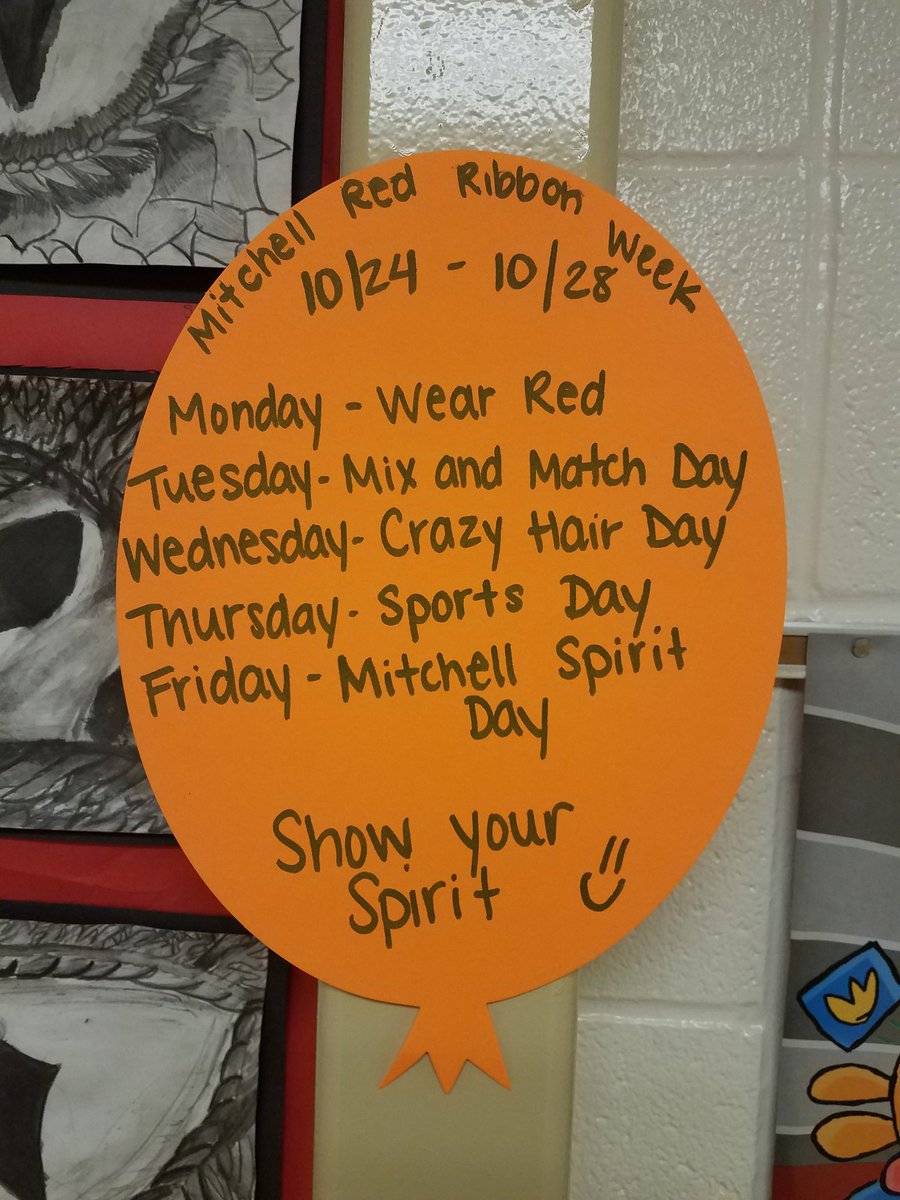 Mitchell Red Ribbon Week
10/24 - 10/28
Monday - Wear Red
Tuesday - Mix and Match Day
Wednesday - Crazy Hair Day
Thursday - Sports Day
Friday - Mitchell Spirit
Day
Show your
Spirit